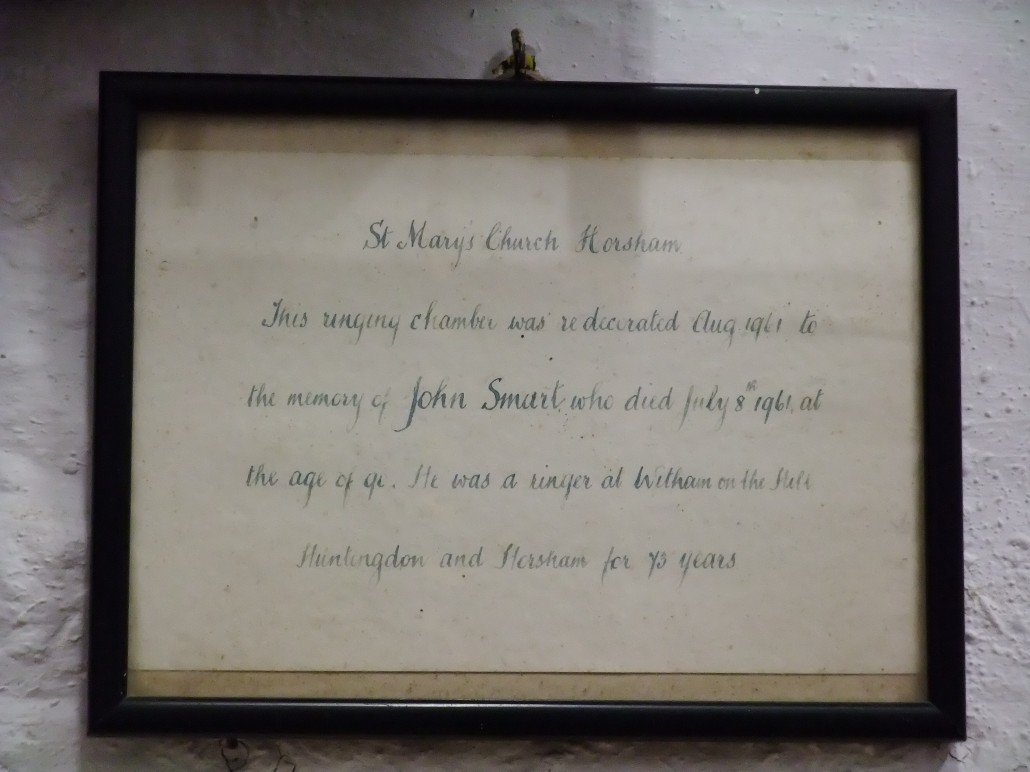 St Mary's Church Horsham
This ringing chamber was redecorated Aug 1961 to
the memory of John Smart, who died July 8th 1961, at
the age of 91. He was a ringer at Witham on the Hill
Huntingdon and Horsham for 73 years